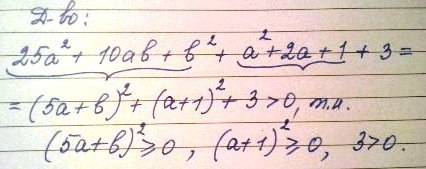 Д-во:
25a² + 10ab + b² + a² + 2a + 1 + 3 =
= (5a+b)² + (a+1)² + 3 > 0, т.к.
(5a+b)² ⩾ 0, (a+1)² ⩾ 0, 3 > 0.